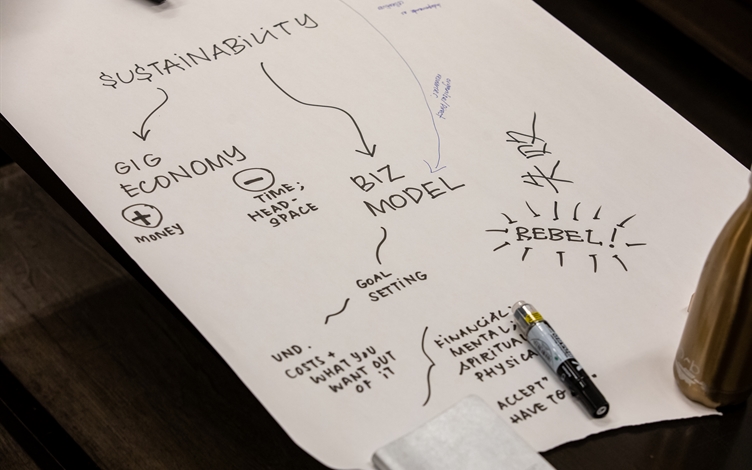 $U$TAINABILITY
GIG
ECONOMY
+
MONEY
−
TIME;
HEAD-
SPACE
BIZ
MODEL
GOAL
SETTING
UND.
COSTS +
WHAT YOU
WANT OUT
OF IT
FINANCIAL.
MENTAL;
SPIRITUAL
PHYSICA
ACCEPT"
HAVE TO
REBEL!